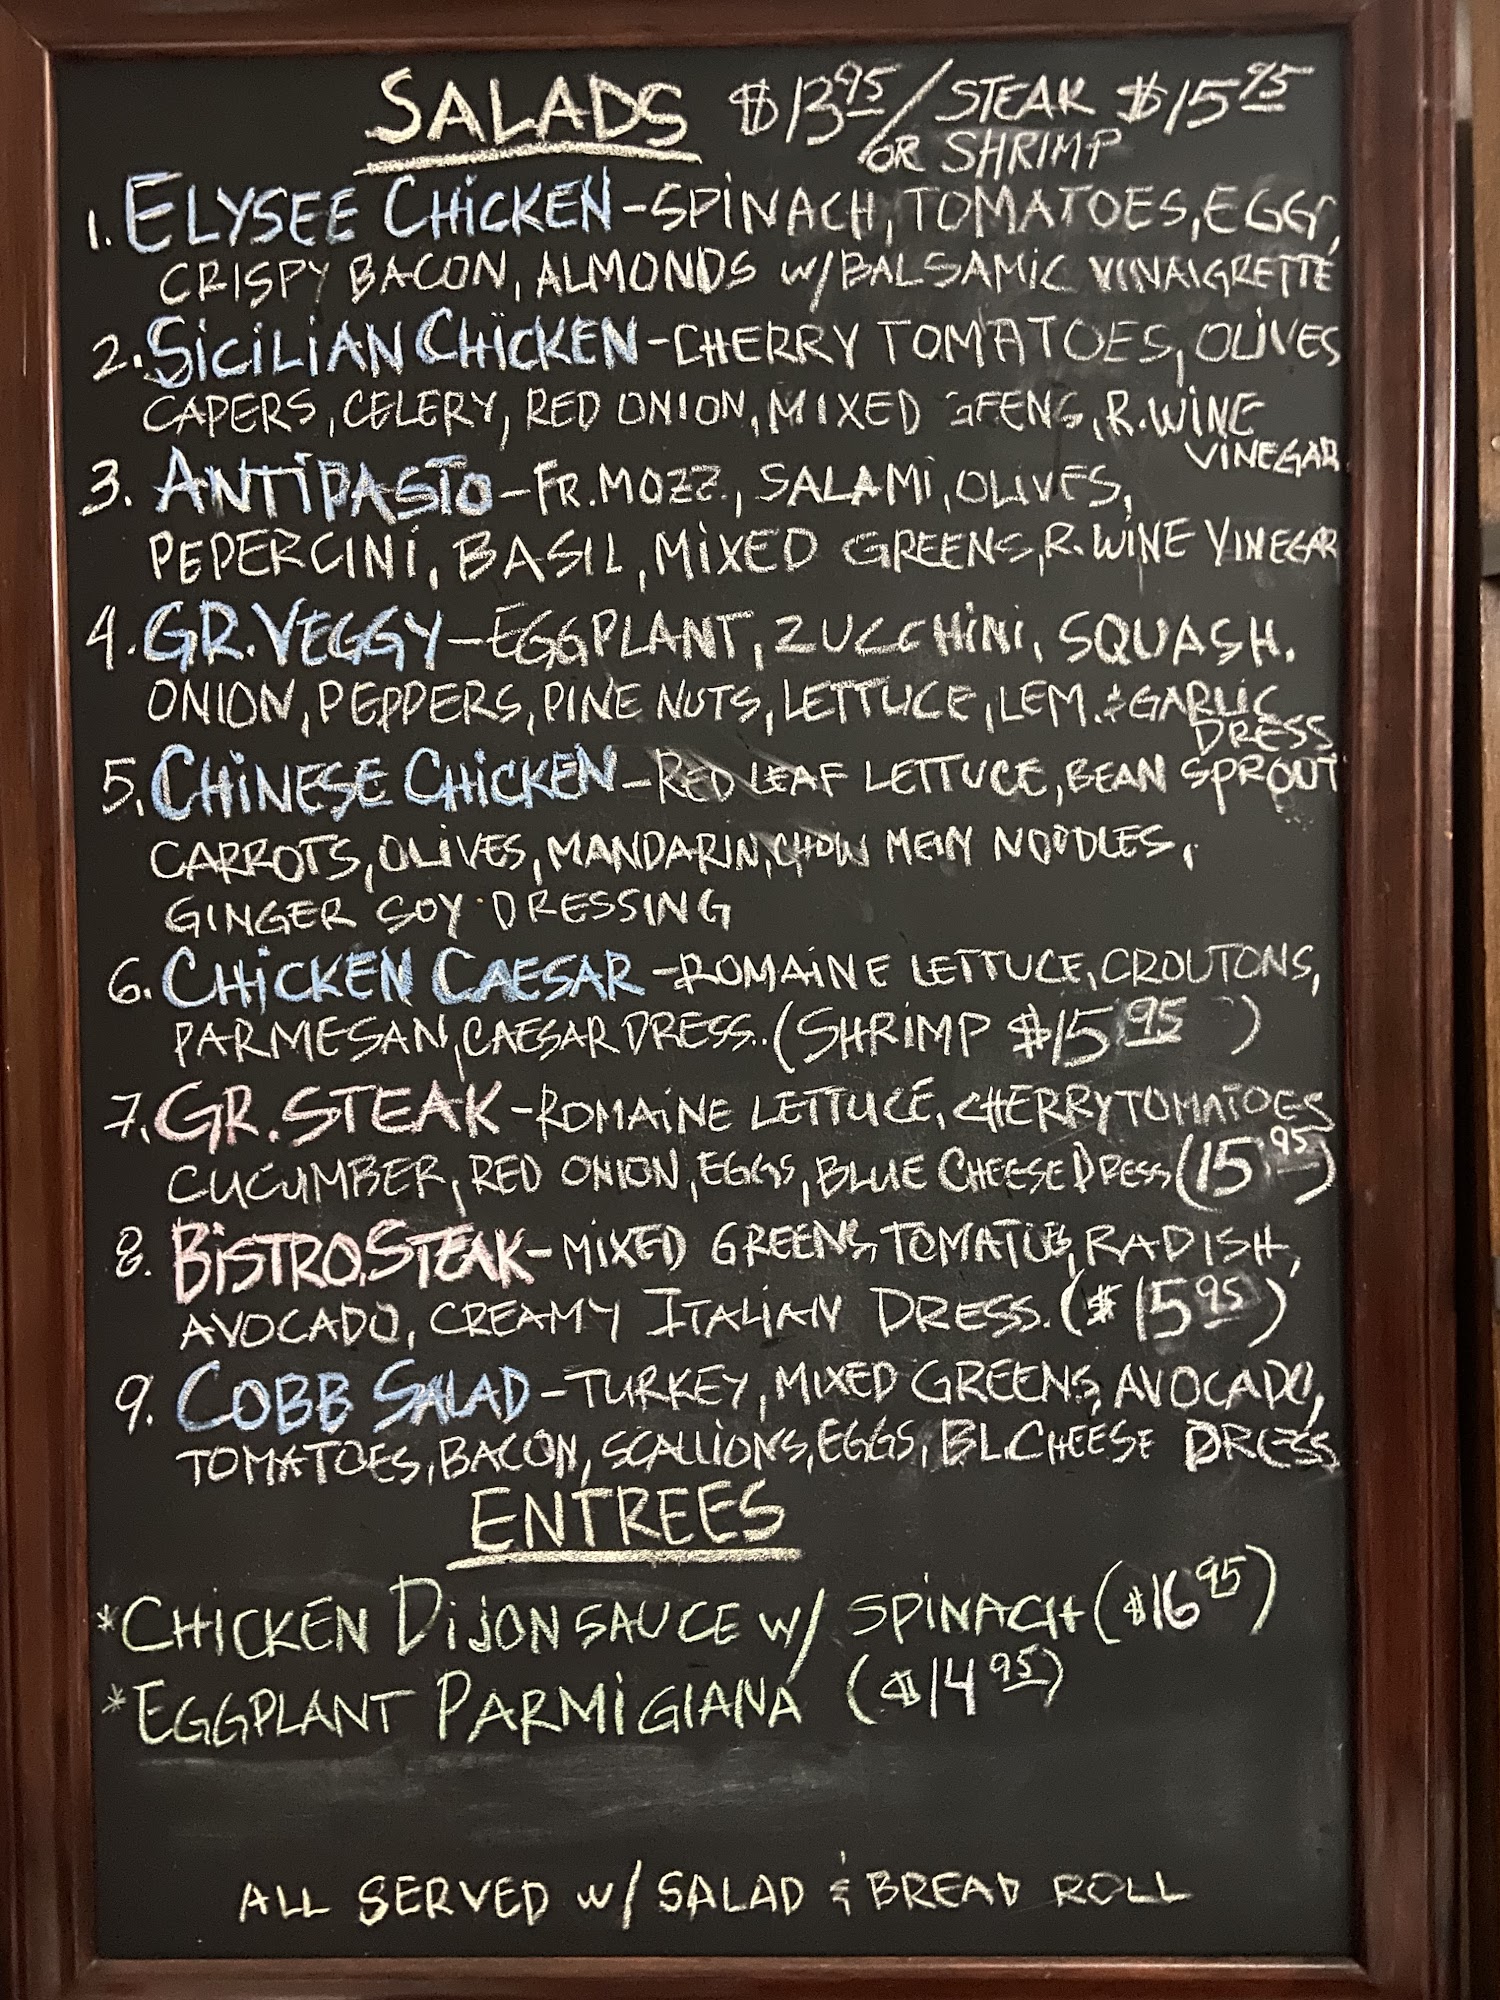 SALADS $13.95/STEAK $15.95
OR SHRIMP
1. ELYSEE CHICKEN - SPINACH, TOMATOES, EGG,
CRISPY BACON, ALMONDS W/BALSAMIC VINAIGRETTE
2. SICILIAN CHICKEN - CHERRY TOMATOES, OLIVES
CAPERS, CELERY, RED ONION, MIXED GEENS, R.WINE
VINEGAR
3. ANTIPASTO - FR.MOZZ., SALAMI, OLIVES,
PEPERCINI, BASIL, MIXED GREENS, R.WINE VINEGAR
4. GR.VEGGY - EGGPLANT, ZUCCHINI, SQUASH.
ONION, PEPPERS, PINE NUTS, LETTUCE, LEM. & GARLIC
DRESS
5. CHINESE CHICKEN - RED LEAF LETTUCE, BEAN SPROUT
CARROTS, OLIVES, MANDARIN, CHOW MEIN NOODLES,
GINGER SOY DRESSING
6. CHICKEN CAESAR - ROMAINE LETTUCE, CROUTONS,
PARMESAN, CAESAR DRESS. (SHRIMP $15.95)
7. GR.STEAK - ROMAINE LETTUCE, CHERRY TOMATOES
CUCUMBER, RED ONION, EGGS, BLUE CHEESE DRESS (15.95)
8. BISTRO.STEAK - MIXED GREENS, TOMATOES, RADISH,
AVOCADO, CREAMY ITALIAN DRESS. ($15.95)
9. COBB SALAD - TURKEY, MIXED GREENS, AVOCADO,
TOMATOES, BACON, SCALLIONS, EGGS, BL.CHEESE DRESS
ENTREES
*CHICKEN DIJON SAUCE W/ SPINACH ($16.95)
*EGGPLANT PARMIGIANA ($14.95)
ALL SERVED W/ SALAD & BREAD ROLL